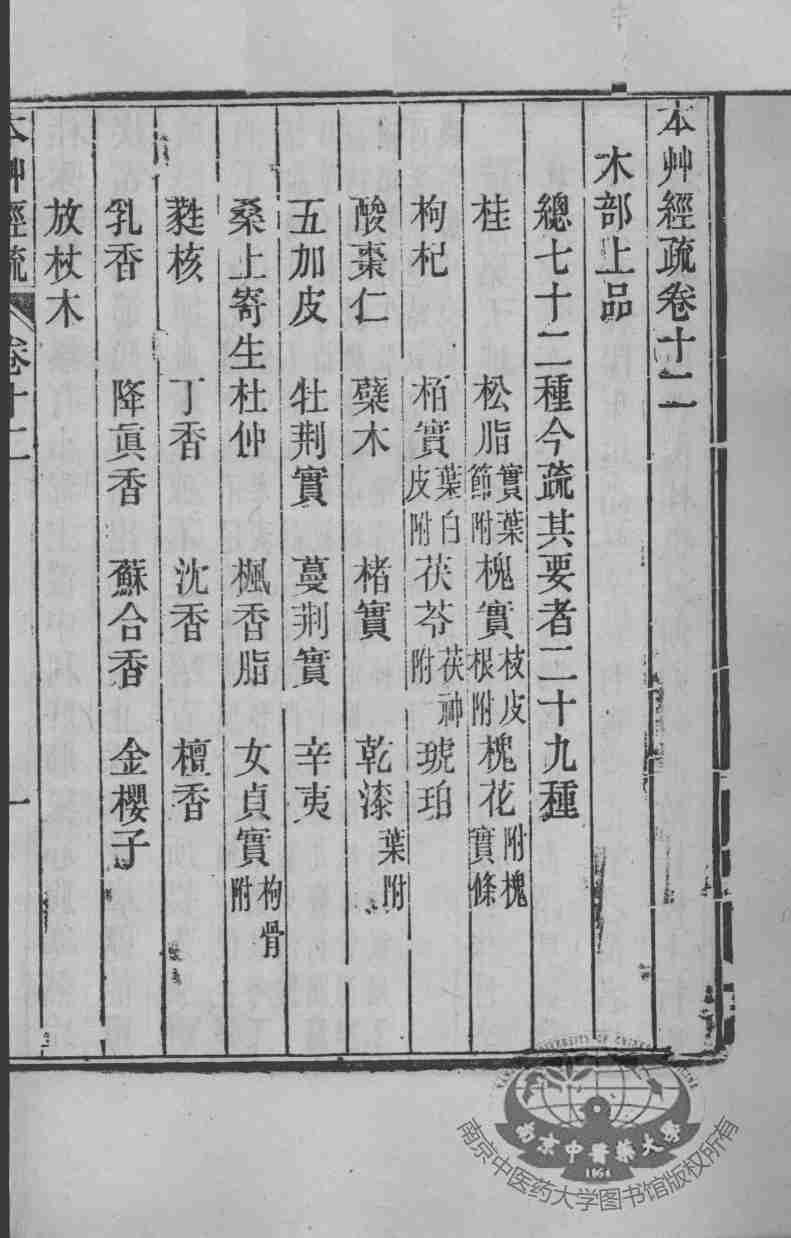 本艸經疏卷十二
木部上品
總七十二種今疏其要者二十九種
桂 松脂 實葉節附 槐實 枝皮根附 槐花 附槐實條
枸杞 栢實 葉白皮附 茯苓 茯神附 琥珀
酸棗仁 蘗木 楮實 乾漆 葉附
五加皮 牡荆實 蔓荆實 辛夷
桑上寄生 杜仲 楓香脂 女貞實 枸骨附
蕤核 丁香 沈香 檀香
乳香 降眞香 蘇合香 金櫻子
放杖木
本艸經疏 卷十二 一
南京中醫藥大學
1954
南京中医药大学图书馆版权所有